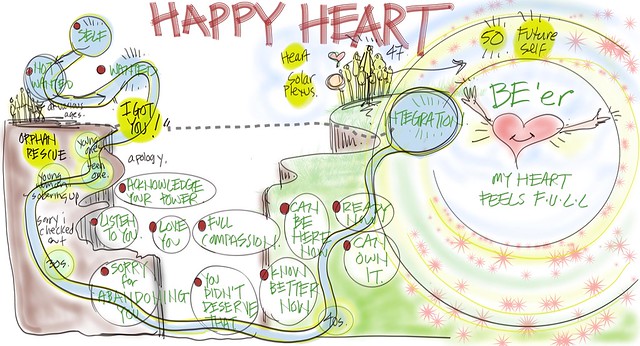 HAPPY HEART
SELF
NOT
WANTED
WANTED
ages.
I GOT
YOU!
ORPHAN
RESCUE
young
one.
teen
one.
young
woman
sobering up
sorry i
checked
out
30s.
apology.
ACKNOWLEDGE
YOUR POWER
LISTEN
TO YOU.
LOVE
YOU
FULL
COMPASSION.
SORRY
for
ABANDONING
YOU
YOU
DIDN'T
DESERVE
THAT
KNOW
BETTER
NOW.
CAN
BE
HERE
NOW
READY
NOW
CAN
OWN
IT.
40s.
Heart
Solar
Plexus.
47
INTEGRATION
50
Future
Self
BE'er
MY HEART
FEELS F.U.L.L